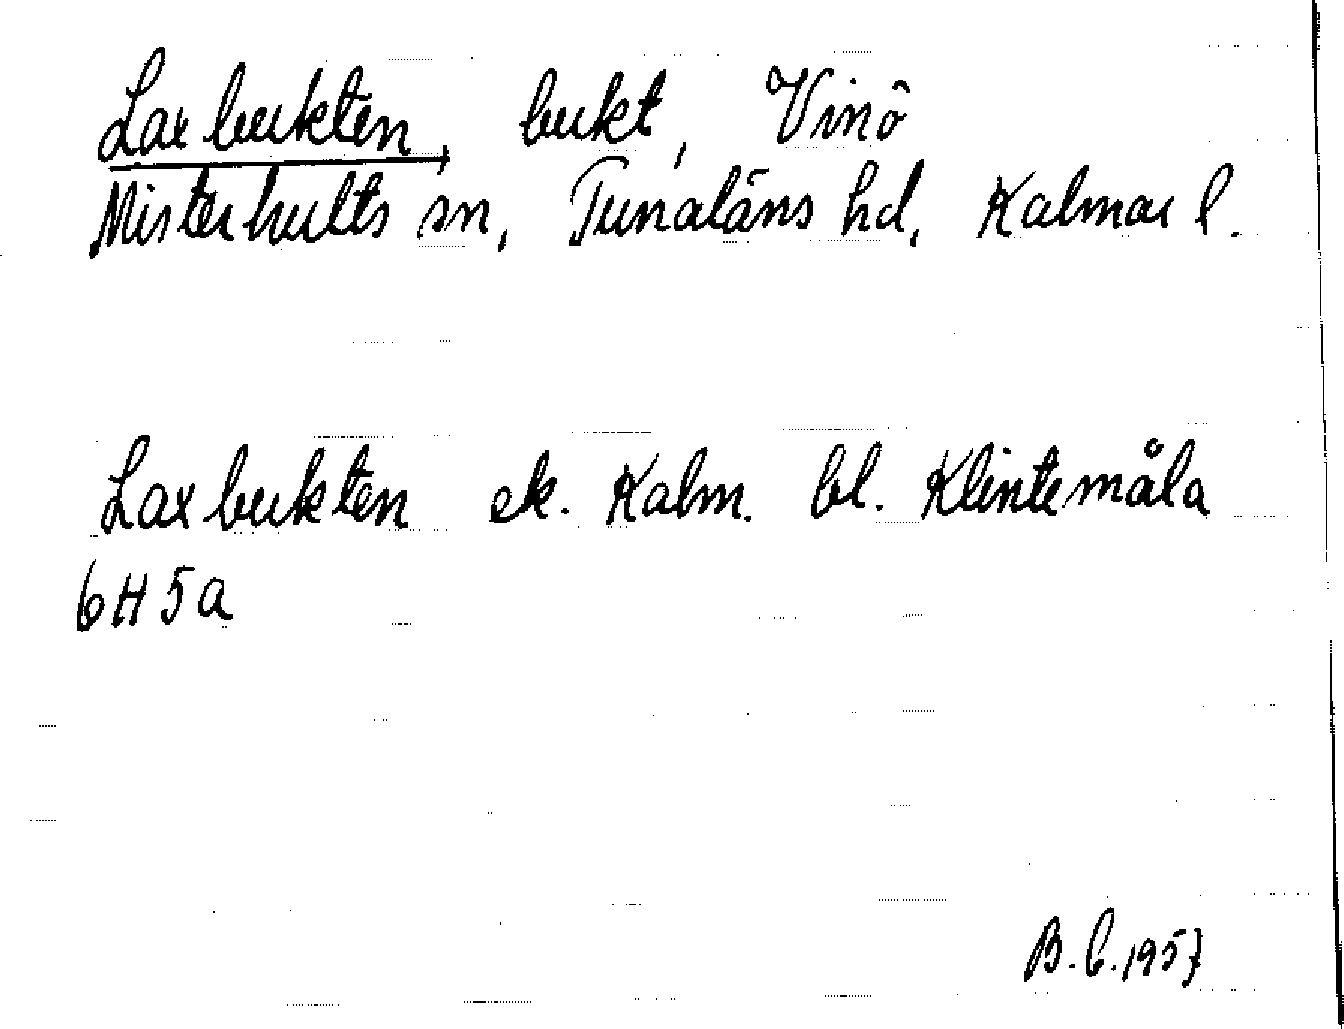 Laxbukten, bukt, Vinö
Misterhults sn, Tunaläns hd, Kalmar l.
Laxbukten ek. Kalm. bl. Klintemåla
6H5a
B.C.1957